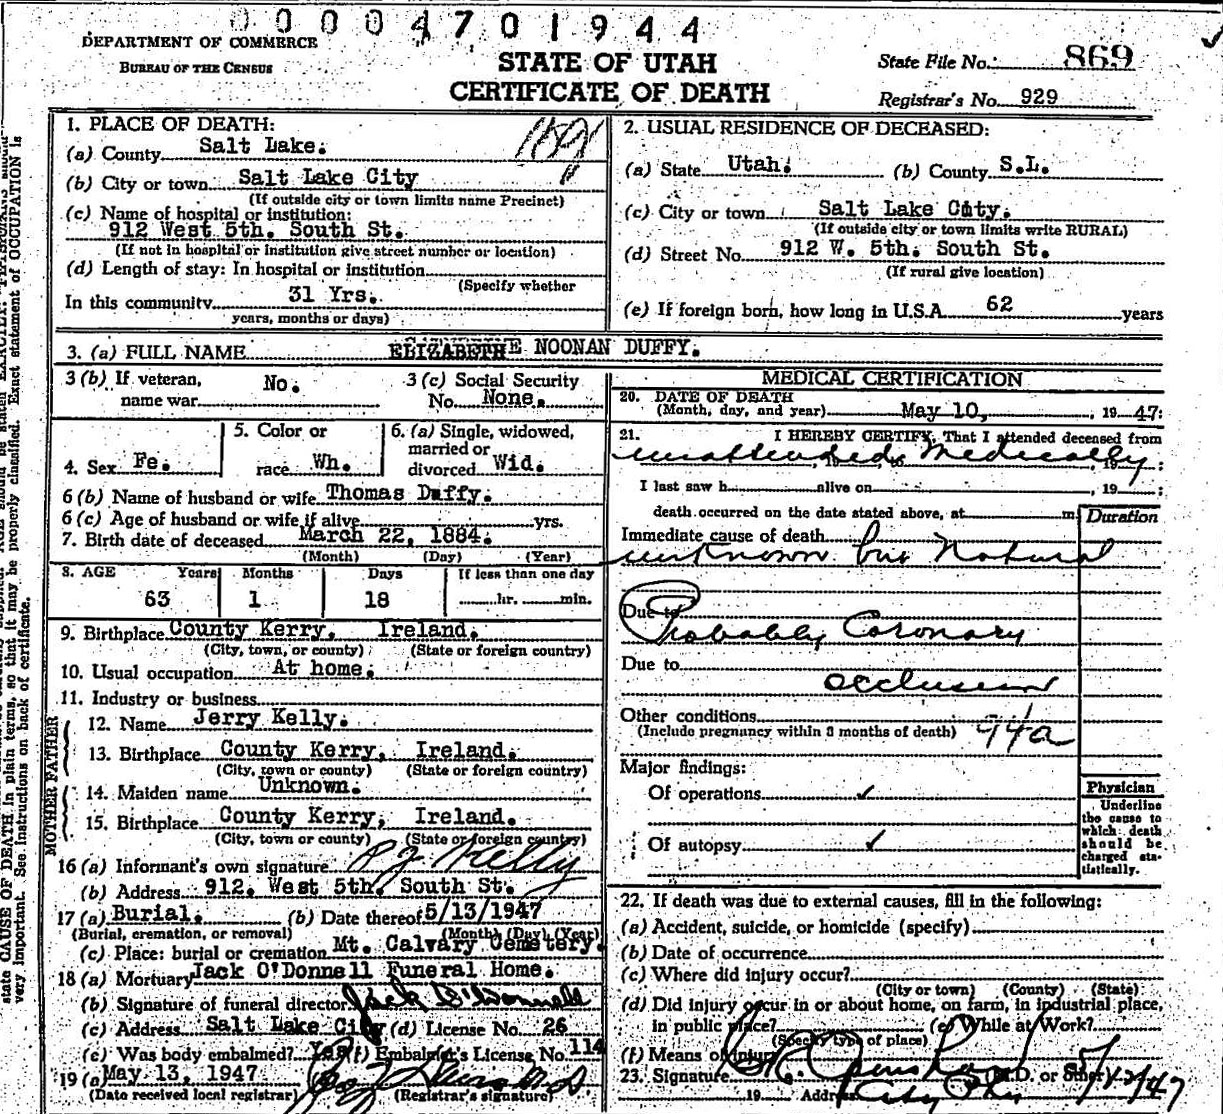 00004701944
DEPARTMENT OF COMMERCE
BUREAU OF THE CENSUS
STATE OF UTAH
CERTIFICATE OF DEATH
State File No. 869
Registrar's No. 929
1. PLACE OF DEATH:
(a) County Salt Lake.
(b) City or town Salt Lake City
(If outside city or town limits name Precinct)
(c) Name of hospital or institution:
912 West 5th. South St.
(If not in hospital or institution give street number or location)
(d) Length of stay: In hospital or institution
(Specify whether
In this community 31 Yrs.
years, months or days)
2. USUAL RESIDENCE OF DECEASED:
(a) State Utah. (b) County S.L.
(c) City or town Salt Lake City.
(If outside city or town limits write RURAL)
(d) Street No. 912 W. 5th. South St.
(If rural give location)
(e) If foreign born, how long in U.S.A. 62 years
3. (a) FULL NAME ELIZABETH NOONAN DUFFY.
3 (b) If veteran, name war No.
3 (c) Social Security No. None.
4. Sex Fe.
5. Color or race Wh.
6. (a) Single, widowed, married or divorced Wid.
6 (b) Name of husband or wife Thomas Duffy.
6 (c) Age of husband or wife if alive yrs.
7. Birth date of deceased March 22, 1884.
(Month) (Day) (Year)
8. AGE Years Months Days If less than one day
63 1 18 hr. min.
9. Birthplace County Kerry, Ireland.
(City, town, or county) (State or foreign country)
10. Usual occupation At home.
11. Industry or business
FATHER
12. Name Jerry Kelly.
13. Birthplace County Kerry, Ireland.
(City, town or county) (State or foreign country)
MOTHER
14. Maiden name Unknown.
15. Birthplace County Kerry, Ireland.
(City, town or county) (State or foreign country)
16 (a) Informant's own signature P J Kelly
(b) Address 912. West 5th. South St.
17 (a) Burial. (b) Date thereof 5/13/1947
(Burial, cremation, or removal) (Month) (Day) (Year)
(c) Place: burial or cremation Mt. Calvary Cemetery.
18 (a) Mortuary Jack O'Donnell Funeral Home.
(b) Signature of funeral director Jack O'Donnell
(c) Address Salt Lake City (d) License No. 26
(e) Was body embalmed? Yes (f) Embalmer's License No. 114
19 (a) May 13, 1947
(Date received local registrar) (Registrar's signature)
MEDICAL CERTIFICATION
20. DATE OF DEATH
(Month, day, and year) May 10, 19 47:
21. I HEREBY CERTIFY, That I attended deceased from
unattended medically 19 to 19 ;
I last saw h alive on , 19 ;
death occurred on the date stated above, at m.
Duration
Immediate cause of death
unknown but Natural
Due to
Probably Coronary
Due to
occlusion
Other conditions
(Include pregnancy within 3 months of death) 94a
Major findings:
Of operations ✓
Of autopsy ✓
Physician
Underline
the cause to
which death
should be
charged sta-
tistically.
22. If death was due to external causes, fill in the following:
(a) Accident, suicide, or homicide (specify)
(b) Date of occurrence
(c) Where did injury occur?
(City or town) (County) (State)
(d) Did injury occur in or about home, on farm, in industrial place,
in public place? (e) While at Work?
(Specify type of place)
(f) Means of injury
23. Signature M.D. or other 5/12/47
19 Address City
state CAUSE OF DEATH in plain terms, so that it may be properly classified. Exact statement of OCCUPATION is
very important. See instructions on back of certificate.